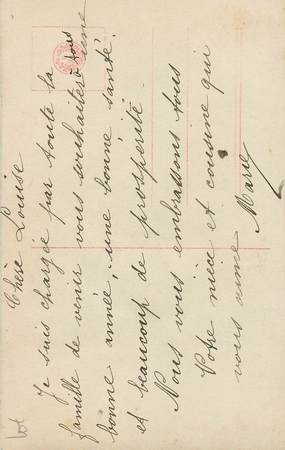 Chère Louise
Je suis chargée par toute la
famille de venir vous souhaiter à tous une
bonne année, une bonne santé.
et beaucoup de prospérité.
Nous vous embrassons tous
Votre nièce et cousine qui
vous aime Marie